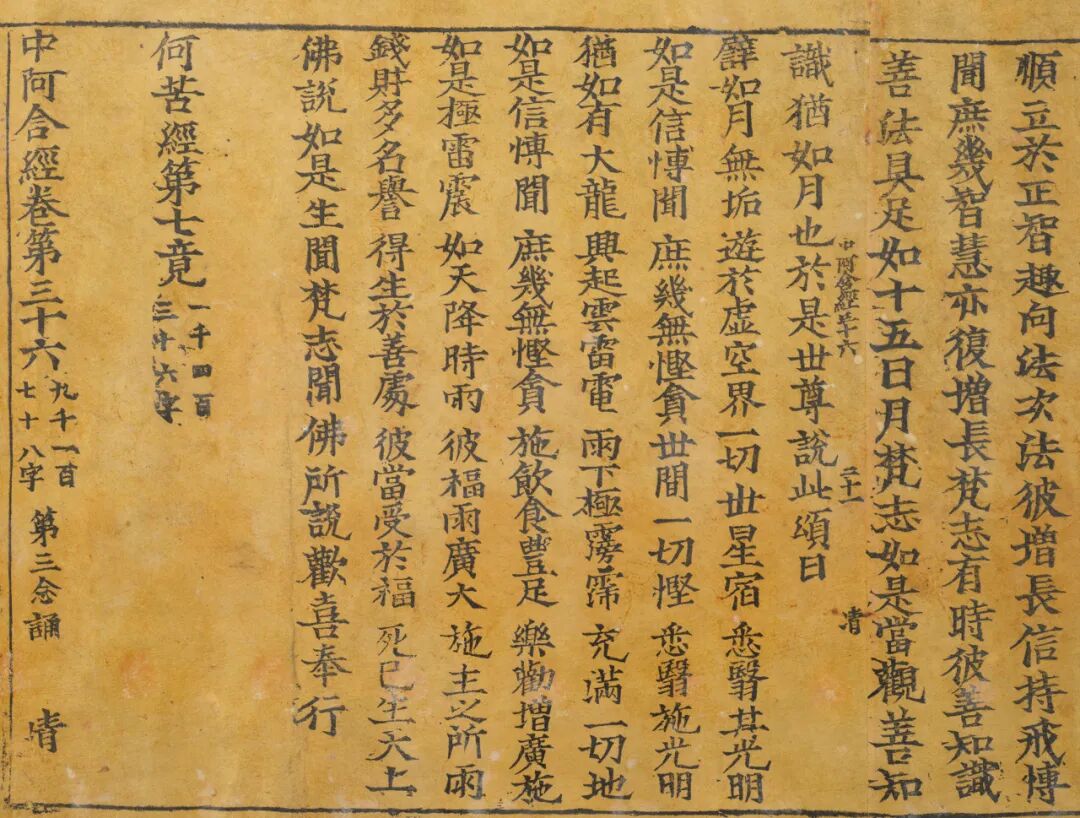 順立於正智趣向法次法彼增長信持戒愽
聞庶幾智慧亦復增長梵志有時彼善知識
善法具足如十五日月梵志如是當觀善知
中阿含經三十六
二十一
清
識猶如月也於是世尊說此頌曰
譬如月無垢 遊於虛空界 一切世星宿 悉翳其光明
如是信愽聞 庶幾無慳貪 世間一切慳 悉翳施光明
猶如有大龍 興起雲雷電 雨下極霶霈 充滿一切地
如是信愽聞 庶幾無慳貪 施飲食豐足 樂勸增廣施
如是極雷震 如天降時雨 彼福雨廣大 施主之所雨
錢財多名譽 得生於善處 彼當受於福 死已生天上
佛說如是生聞梵志聞佛所說歡喜奉行
何苦經第七竟 一千四百三十六字
中阿含經卷第三十六 九千一百七十八字 第三念誦 清